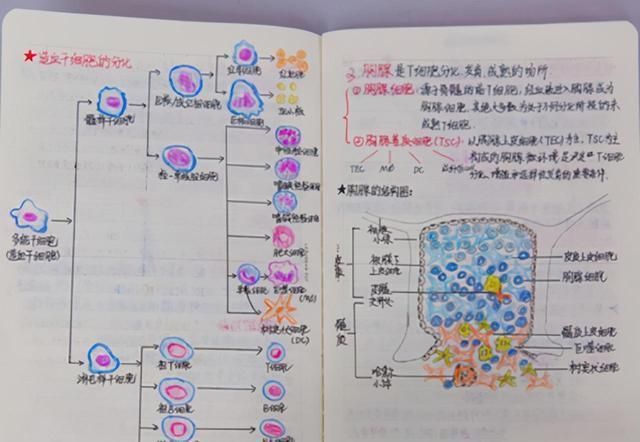 ★造血干细胞的分化
红细胞
红细胞
髓样干细胞
巨核/成红祖细胞
巨核细胞
血小板
中性粒细胞
粒-单祖细胞
嗜酸粒细胞
嗜碱粒细胞
多能干细胞
(造血干细胞)
肥大细胞
单核细胞
巨噬细胞
(MΦ)
树突状细胞
(DC)
淋巴样干细胞
祖T细胞
T细胞
祖B细胞
B细胞
3. 胸腺 是T细胞分化、发育、成熟的场所.
① 胸腺细胞: 源于骨髓的祖T细胞, 经血液进入胸腺成为
胸腺细胞, 其绝大多数为处于不同分化阶段的未
成熟T细胞.
② 胸腺基质细胞(TSC): 以胸腺上皮细胞(TEC)为主, TSC为主
构成的胸腺微环境是决定T细胞
TEC MΦ DC
分化、增殖和选择性发育的重要条件.
★胸腺的结构图:
被膜
小梁
皮质
被膜下
上皮细胞
皮质上皮细胞
胸腺细胞
皮髓
交界处
髓质
髓质上皮细胞
巨噬细胞
树突状细胞
哈索尔
小体